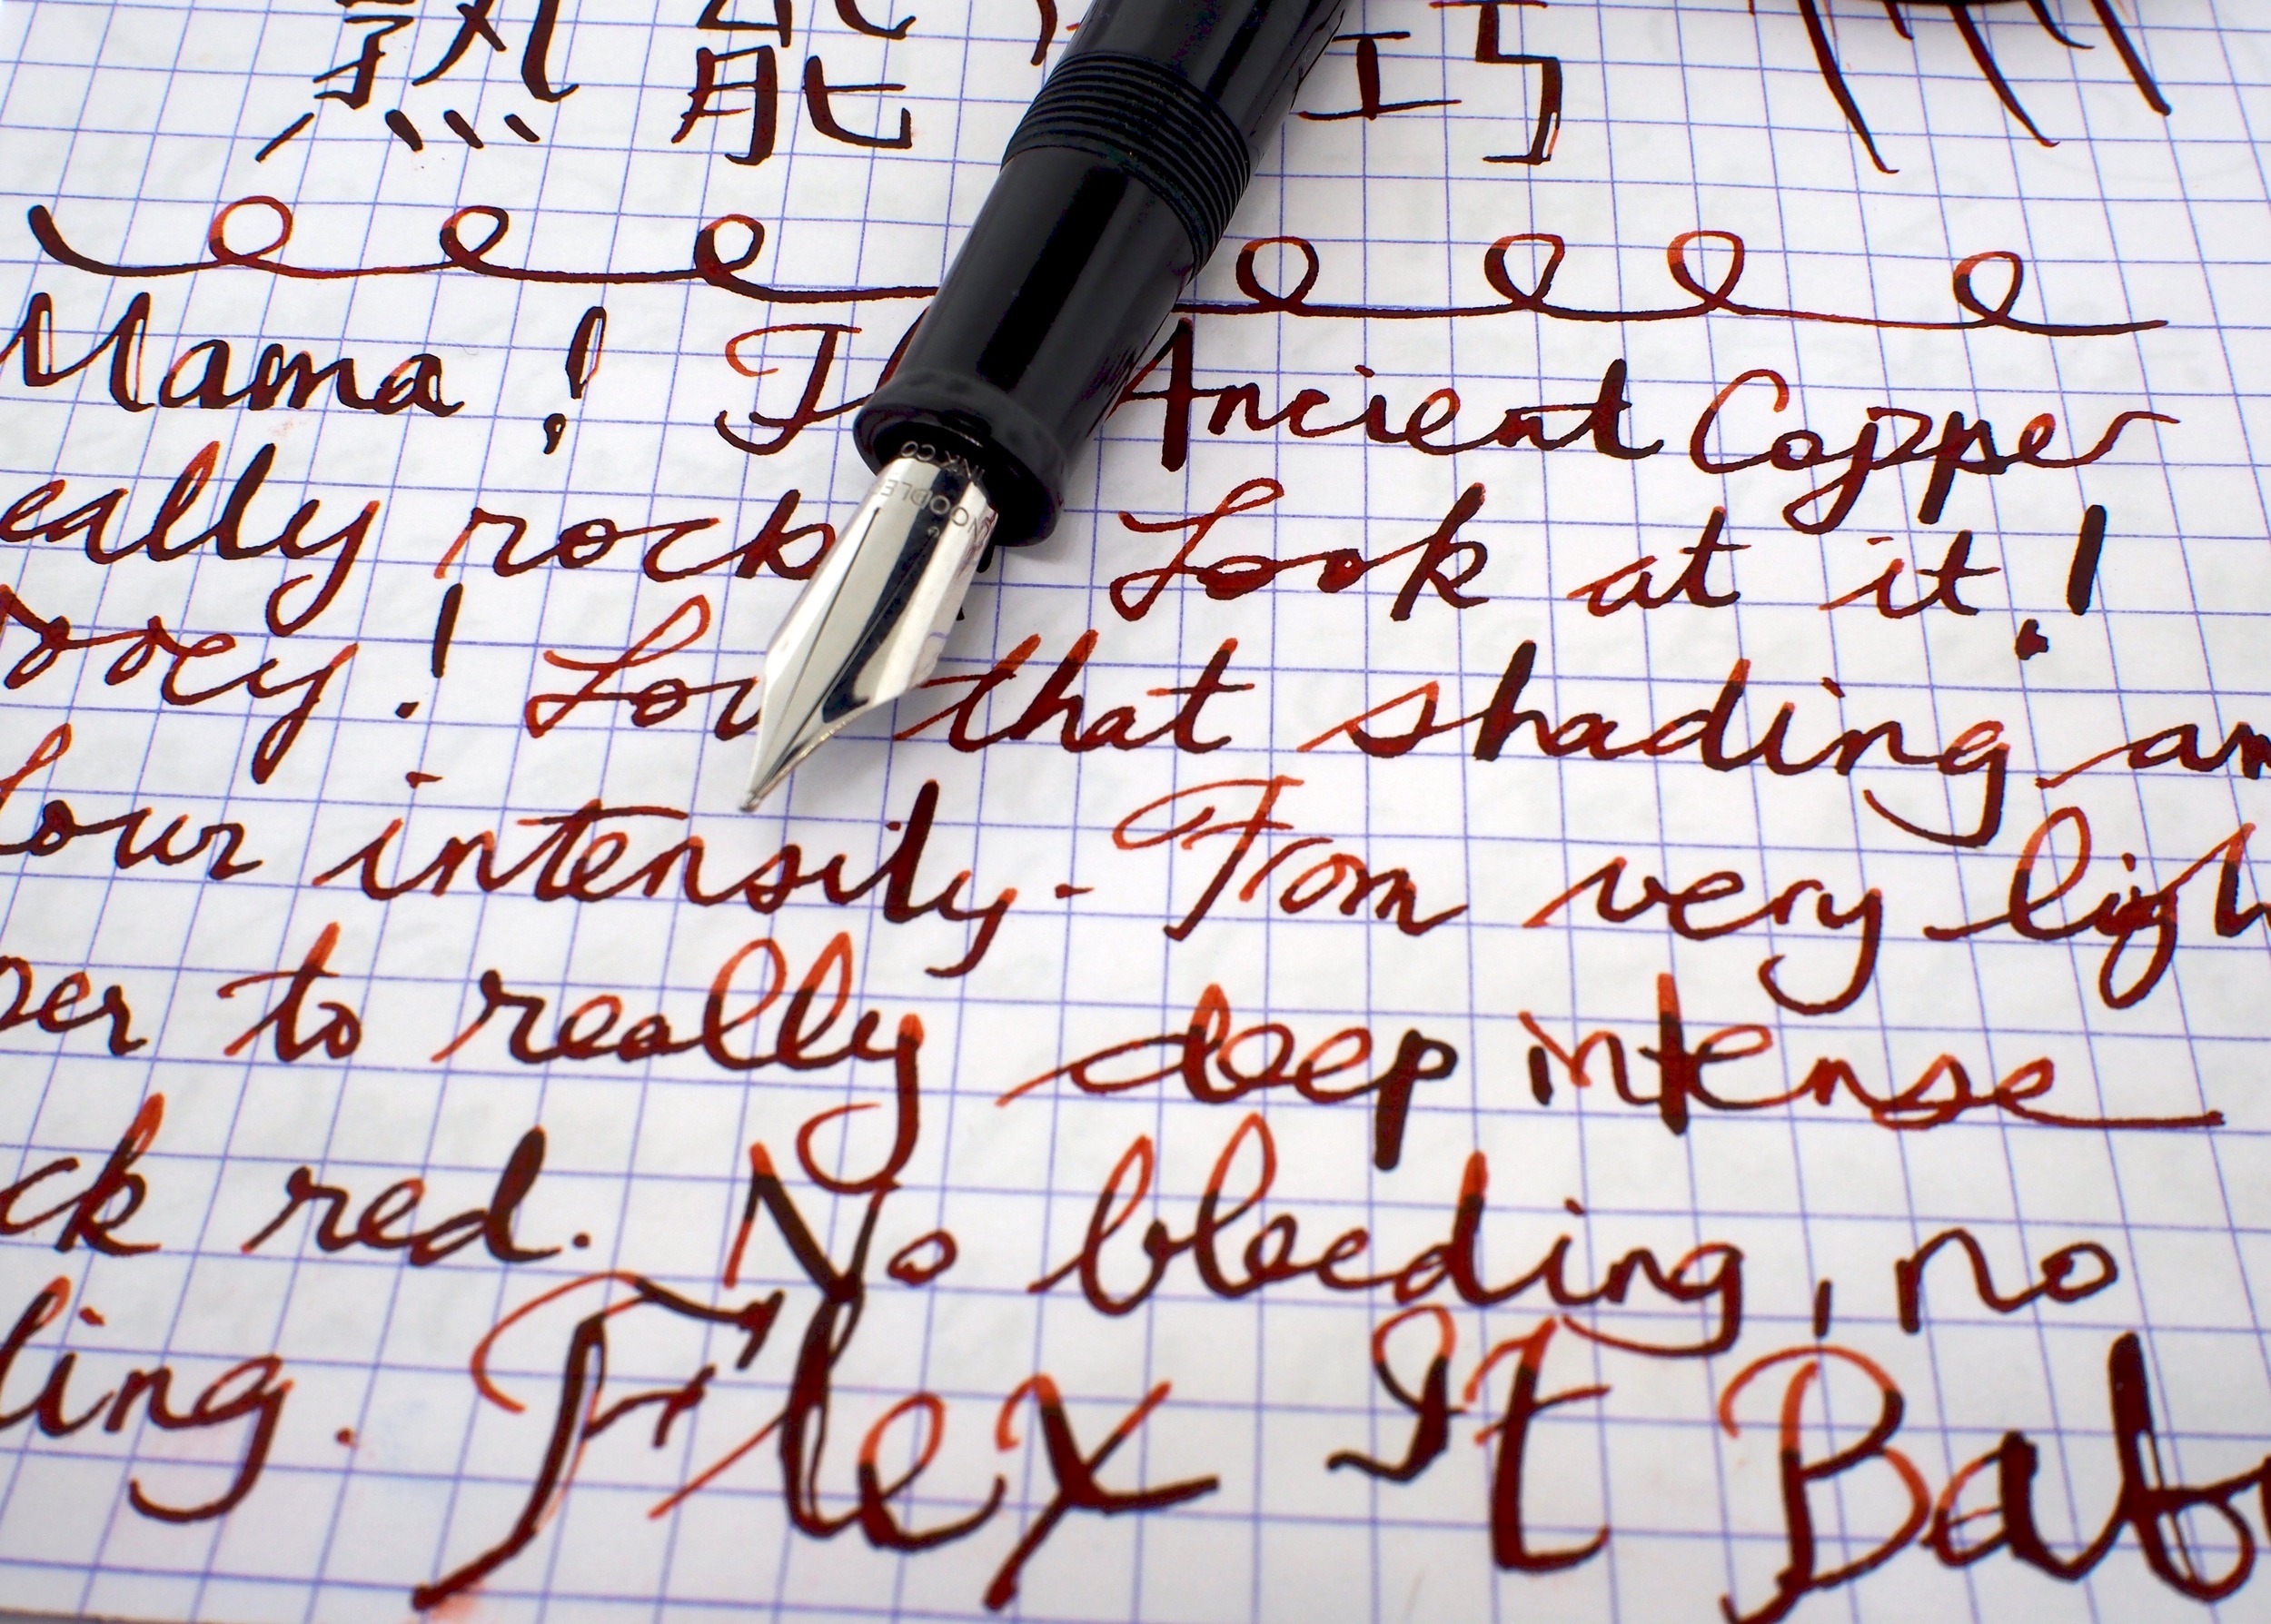 熟 能 巧
Mama! Ancient Copper
eally rock Look at it!
ovey! that shading an
lour intensity. From very ligh
per to really deep intense
ck red. No bleeding, no
ling. Flex It Bab
NOODLE INK CO